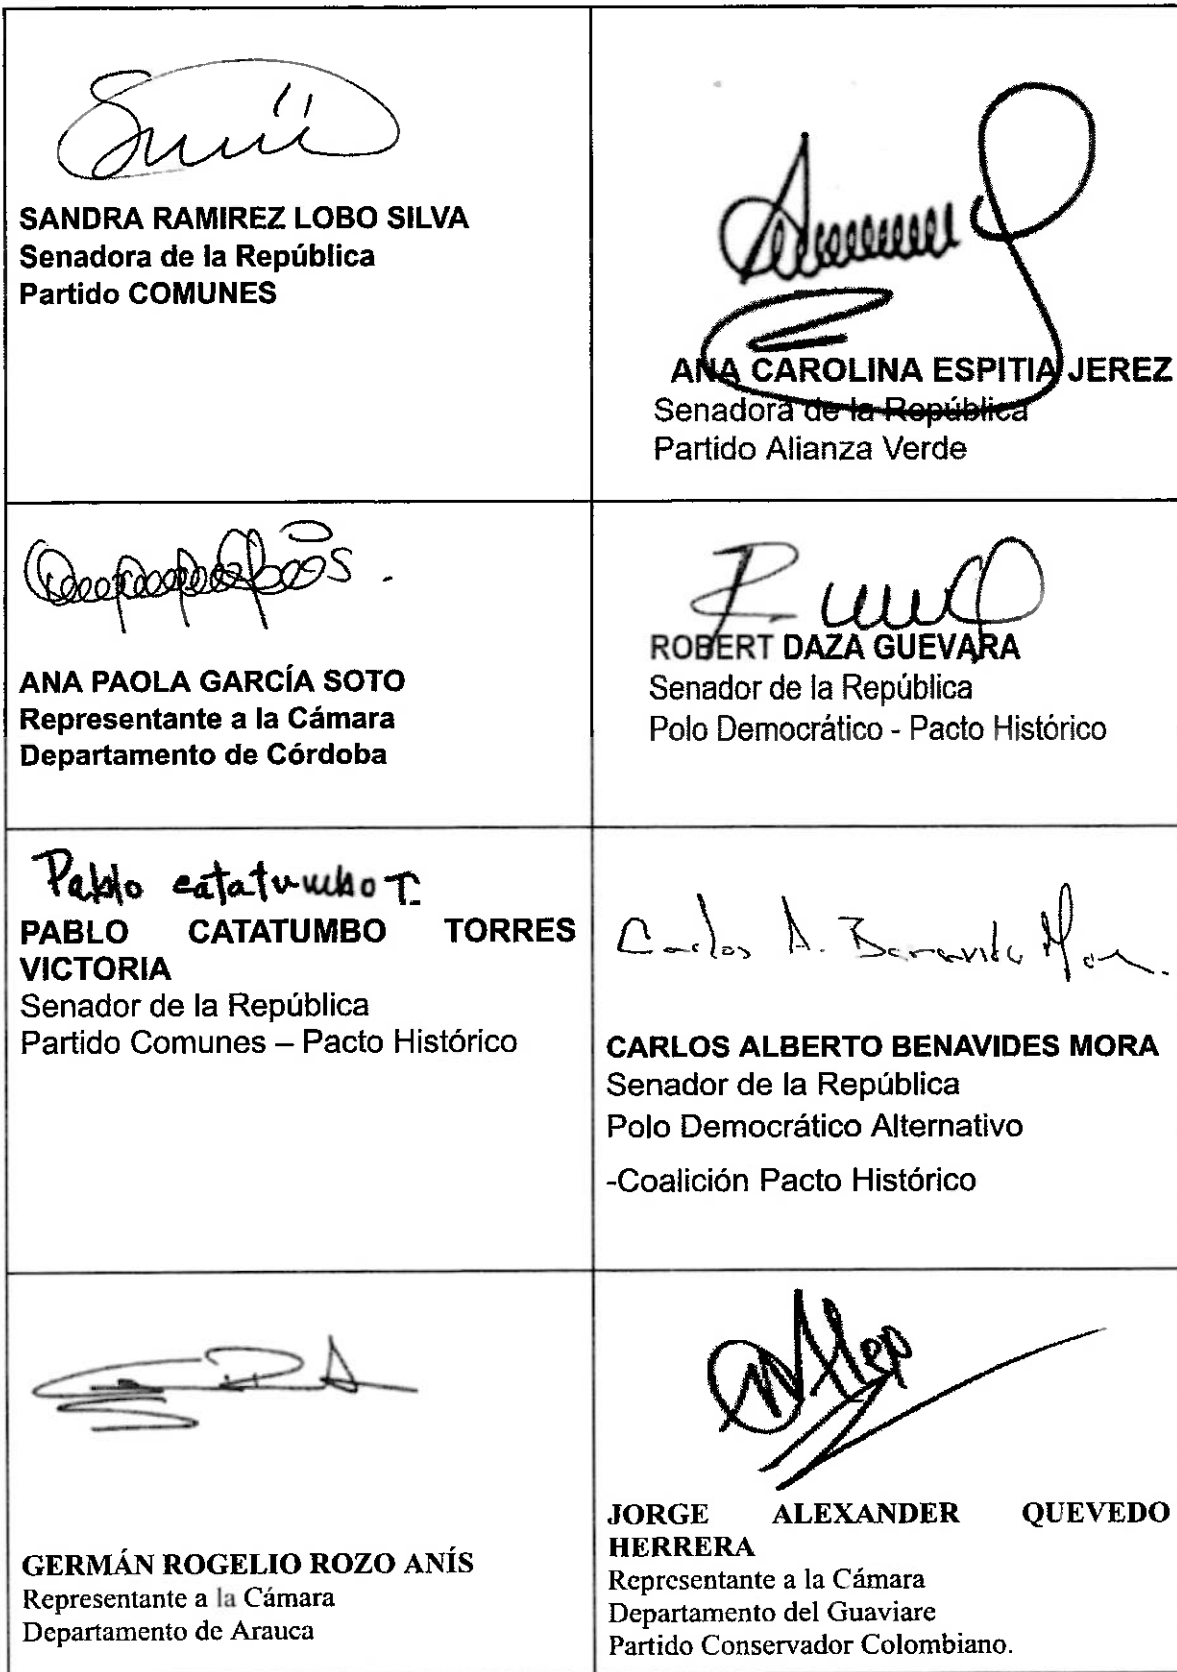 SANDRA RAMIREZ LOBO SILVA
Senadora de la República
Partido COMUNES
ANA CAROLINA ESPITIA JEREZ
Senadora de la República
Partido Alianza Verde
ANA PAOLA GARCÍA SOTO
Representante a la Cámara
Departamento de Córdoba
ROBERT DAZA GUEVARA
Senador de la República
Polo Democrático - Pacto Histórico
Pablo catatumbo T.
PABLO CATATUMBO TORRES
VICTORIA
Senador de la República
Partido Comunes – Pacto Histórico
Carlos A. Benavides Mora.
CARLOS ALBERTO BENAVIDES MORA
Senador de la República
Polo Democrático Alternativo
-Coalición Pacto Histórico
GERMÁN ROGELIO ROZO ANÍS
Representante a la Cámara
Departamento de Arauca
JORGE ALEXANDER QUEVEDO
HERRERA
Representante a la Cámara
Departamento del Guaviare
Partido Conservador Colombiano.